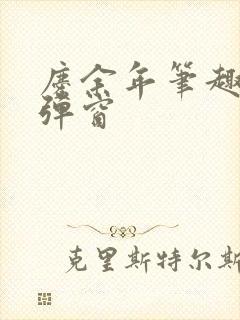 庆余年筆趣
弹窗
克里斯特尔斯